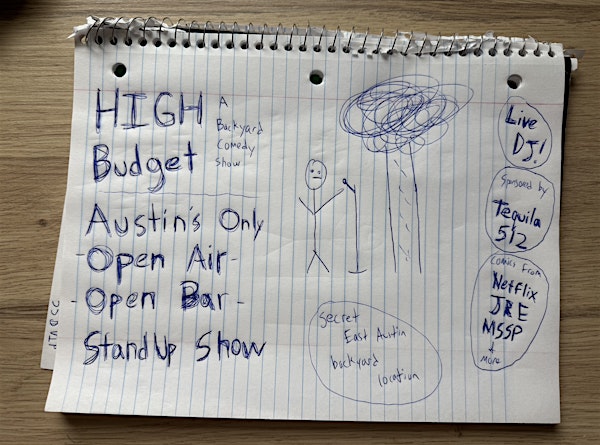 HIGH
Budget
A
Backyard
Comedy
Show
Austin's Only
-Open Air-
-Open Bar-
StandUp Show
Secret
East Austin
backyard
location
Live
DJ!
Sponsored by
Tequila
512
Comics From
Netflix
JRE
MSSP
&
More